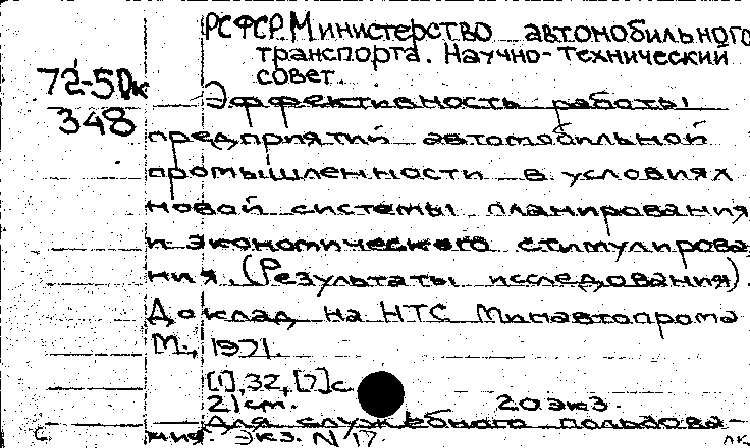 РСФСР. Министерство автомобильного
транспорта. Научно-технический
совет.
72-5Дк
348
Эффективность работы
предприятий автомобильной
промышленности в условиях
новой системы планирования
и экономического стимулирова-
ния. (Результаты исследования).
Доклад на НТС Минавтопрома
М., 1971.
[1], 32, [7] с.
21 см. 20 экз.
Для служебного пользова-
ния. Экз. N 17.
с